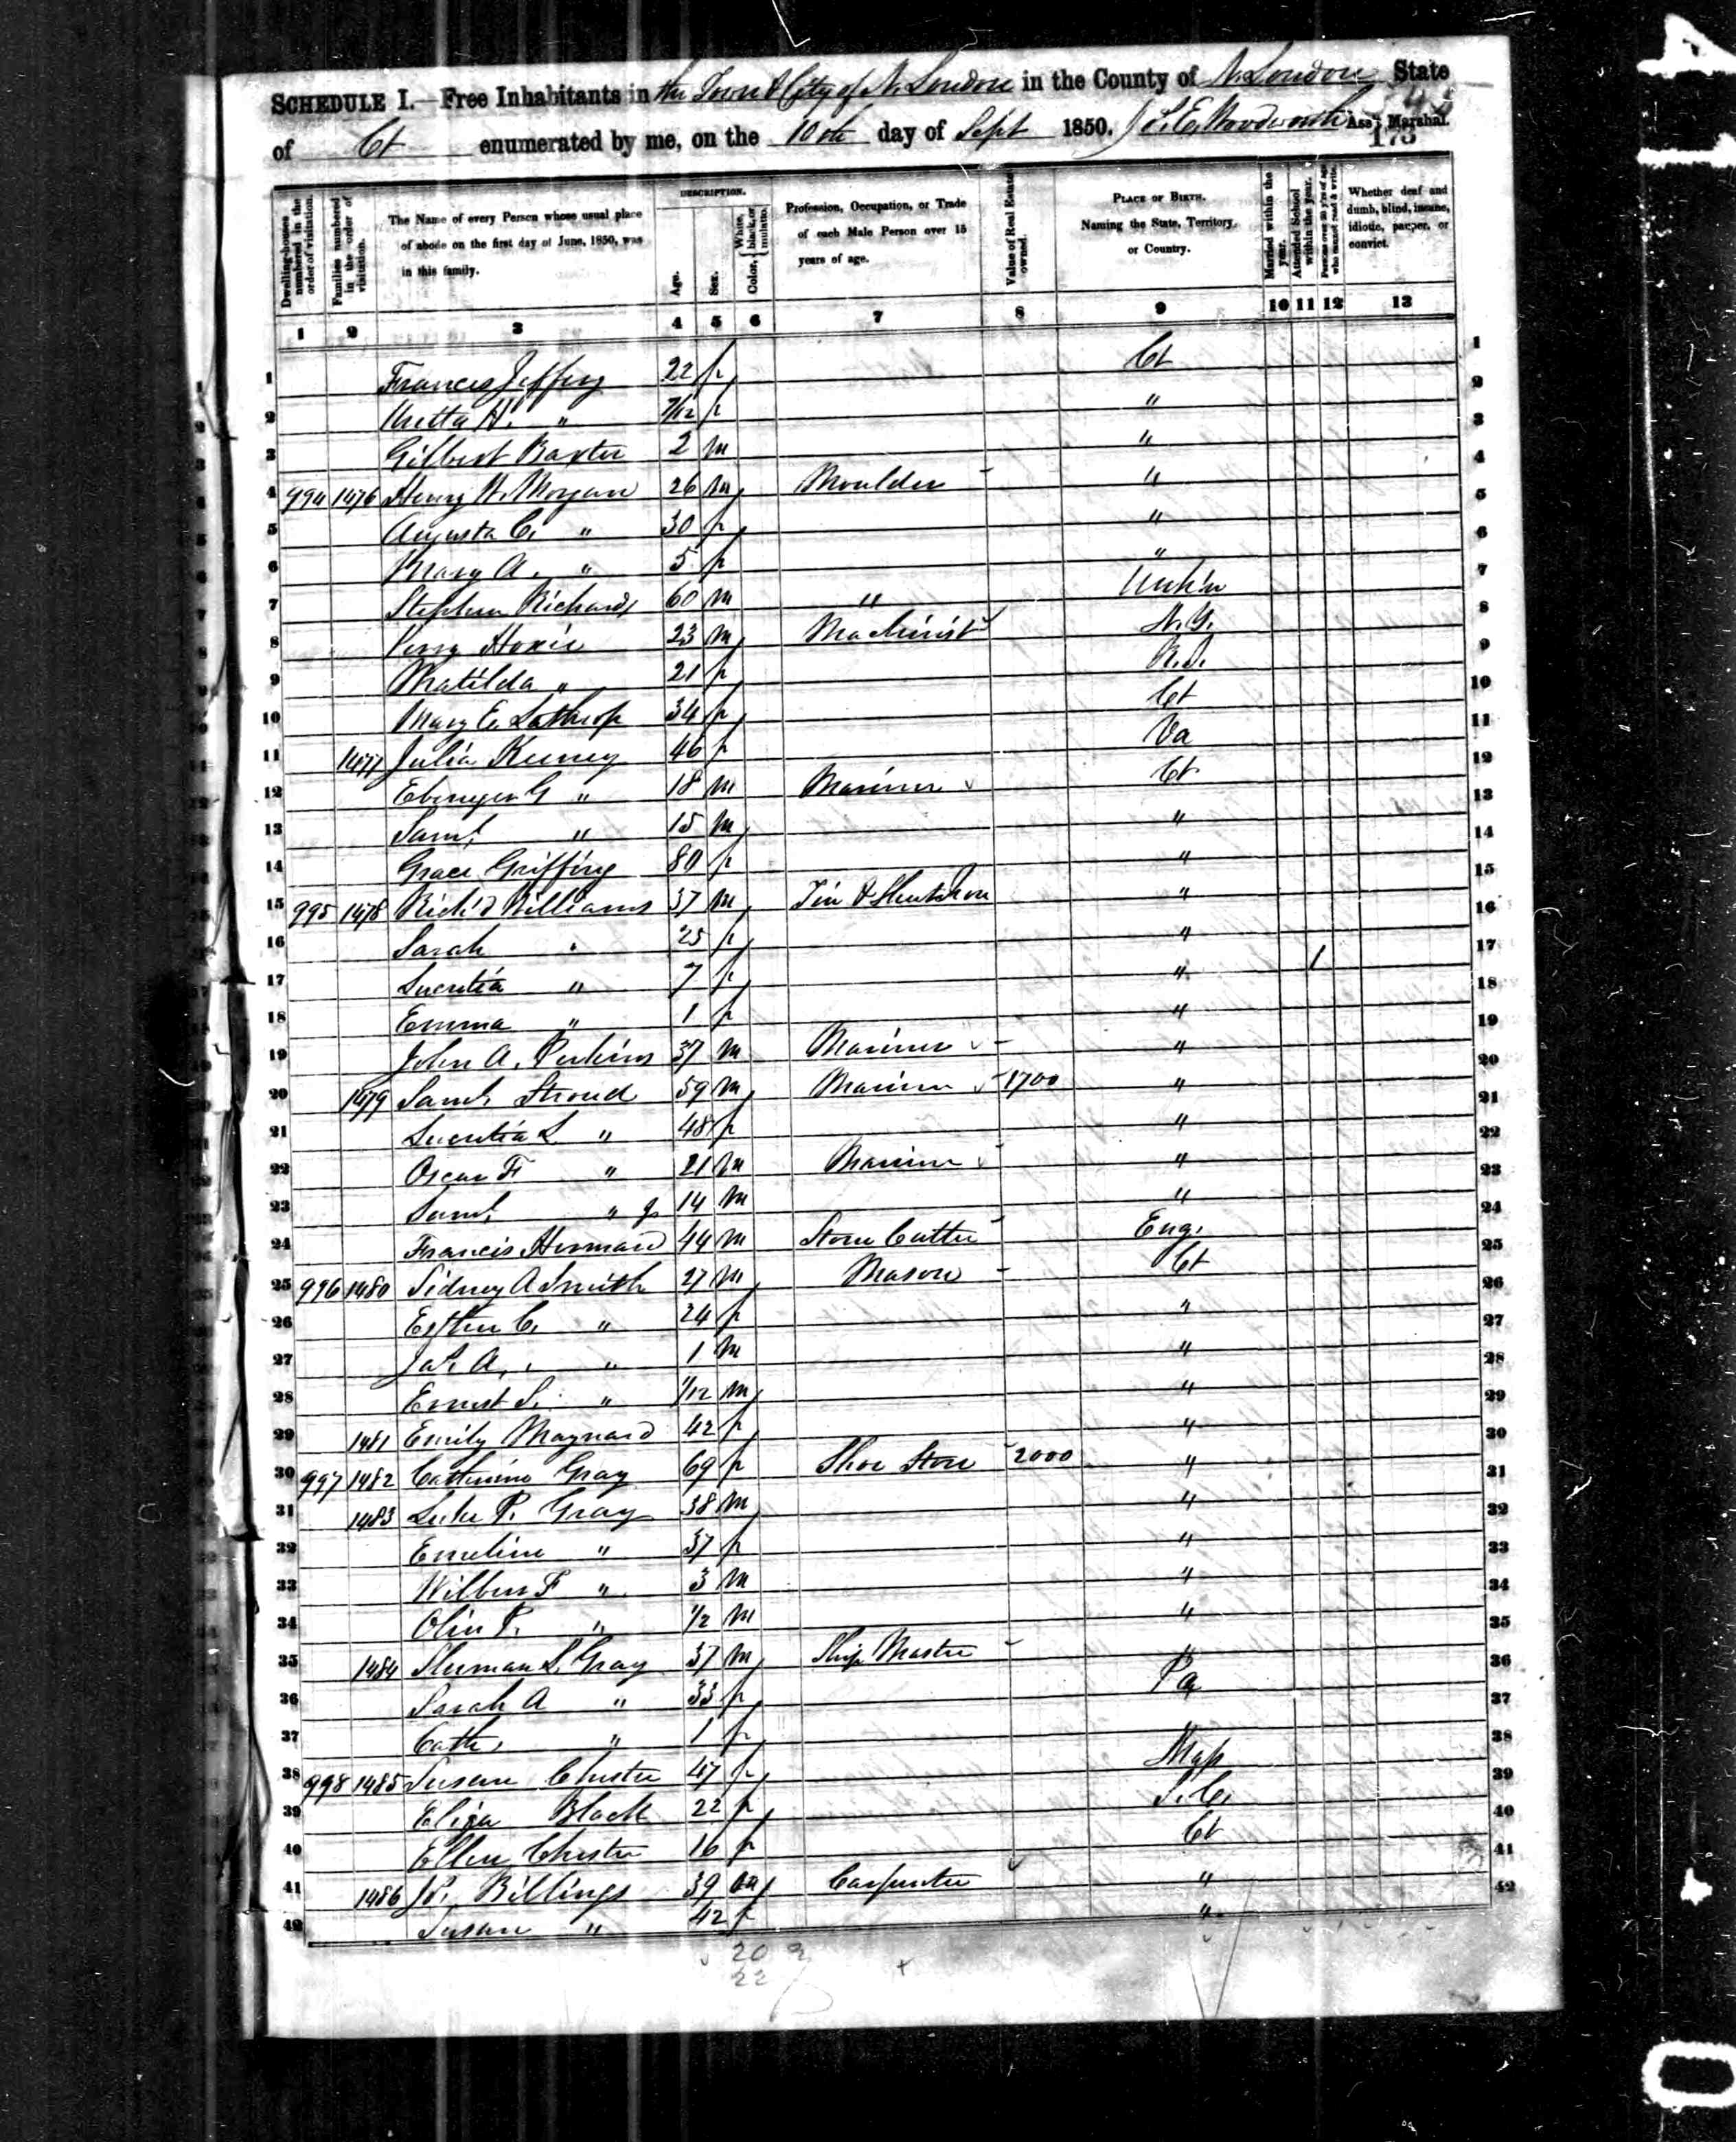 SCHEDULE I.—Free Inhabitants in the Town & City of N. London in the County of N. London State
of Ct enumerated by me, on the 10th day of Sept 1850. Ass't Marshal.
173
Dwelling-houses numbered in the order of visitation.
Families numbered in the order of visitation.
The Name of every Person whose usual place of abode on the first day of June, 1850, was in this family.
DESCRIPTION.
Age.
Sex.
Color, White, black, or mulatto.
Profession, Occupation, or Trade of each Male Person over 15 years of age.
Value of Real Estate owned.
PLACE OF BIRTH. Naming the State, Territory, or Country.
Married within the year.
Attended School within the year.
Persons over 20 y'rs of age who cannot read & write.
Whether deaf and dumb, blind, insane, idiotic, pauper, or convict.
1 2 3 4 5 6 7 8 9 10 11 12 13
1 Francis Jeffery 22 f Ct 1
2 H. " 7/12 f " 2
3 Gilbert Baxter 2 m " 3
4 994 1476 Henry H. Morgan 26 m Moulder " 4
5 Augusta C. " 30 f " 5
6 Mary A. " 5 f " 6
7 Stephen Richards 60 m " Unk'n 7
8 Perry Hoxie 23 m Machinist N.Y. 8
9 Matilda " 21 f R.I. 9
10 Mary E. Lathrop 34 f Ct 10
11 1477 Julia Keeney 46 f Va 11
12 Ebenezer G " 18 m Mariner Ct 12
13 Saml. " 15 m " 13
14 Grace Griffing 80 f " 14
15 995 1478 Rich'd Williams 37 m Tin & Sheet Iron " 15
16 Sarah " 25 f " 16
17 Lucretia " 7 f " / 17
18 Emma " 1 f " 18
19 John A. Perkins 37 m Mariner " 19
20 1479 Saml. Stroud 59 m Mariner 1700 " 20
21 Lucretia L " 48 f " 21
22 Oscar F " 21 m Mariner " 22
23 Saml. " Jr 14 m " 23
24 Francis 44 m Stone Cutter Eng. 24
25 996 1480 Sidney A Smith 27 m Mason Ct 25
26 Esther C. " 24 f " 26
27 Jas. A. " 1 m " 27
28 Ernest S. " 1/12 m " 28
29 1481 Emily Maynard 42 f " 29
30 997 1482 Catherine Gray 69 f Shoe Store 2000 " 30
31 1483 Luke P. Gray 38 m " 31
32 Emeline " 37 f " 32
33 Wilbur F " 3 m " 33
34 Olin P. " 1/2 m " 34
35 1484 Slumman S. Gray 37 m Ship Master " 35
36 Sarah A " 33 f Pa 36
37 Cath. " 1 f 37
38 998 1485 Susan Chester 47 f Mass 38
39 Eliza Black 22 f S.C. 39
40 Ellen Chester 16 f Ct 40
41 1486 Billings 39 m Carpenter " 41
42 Susan " 42 f " 42
20
22